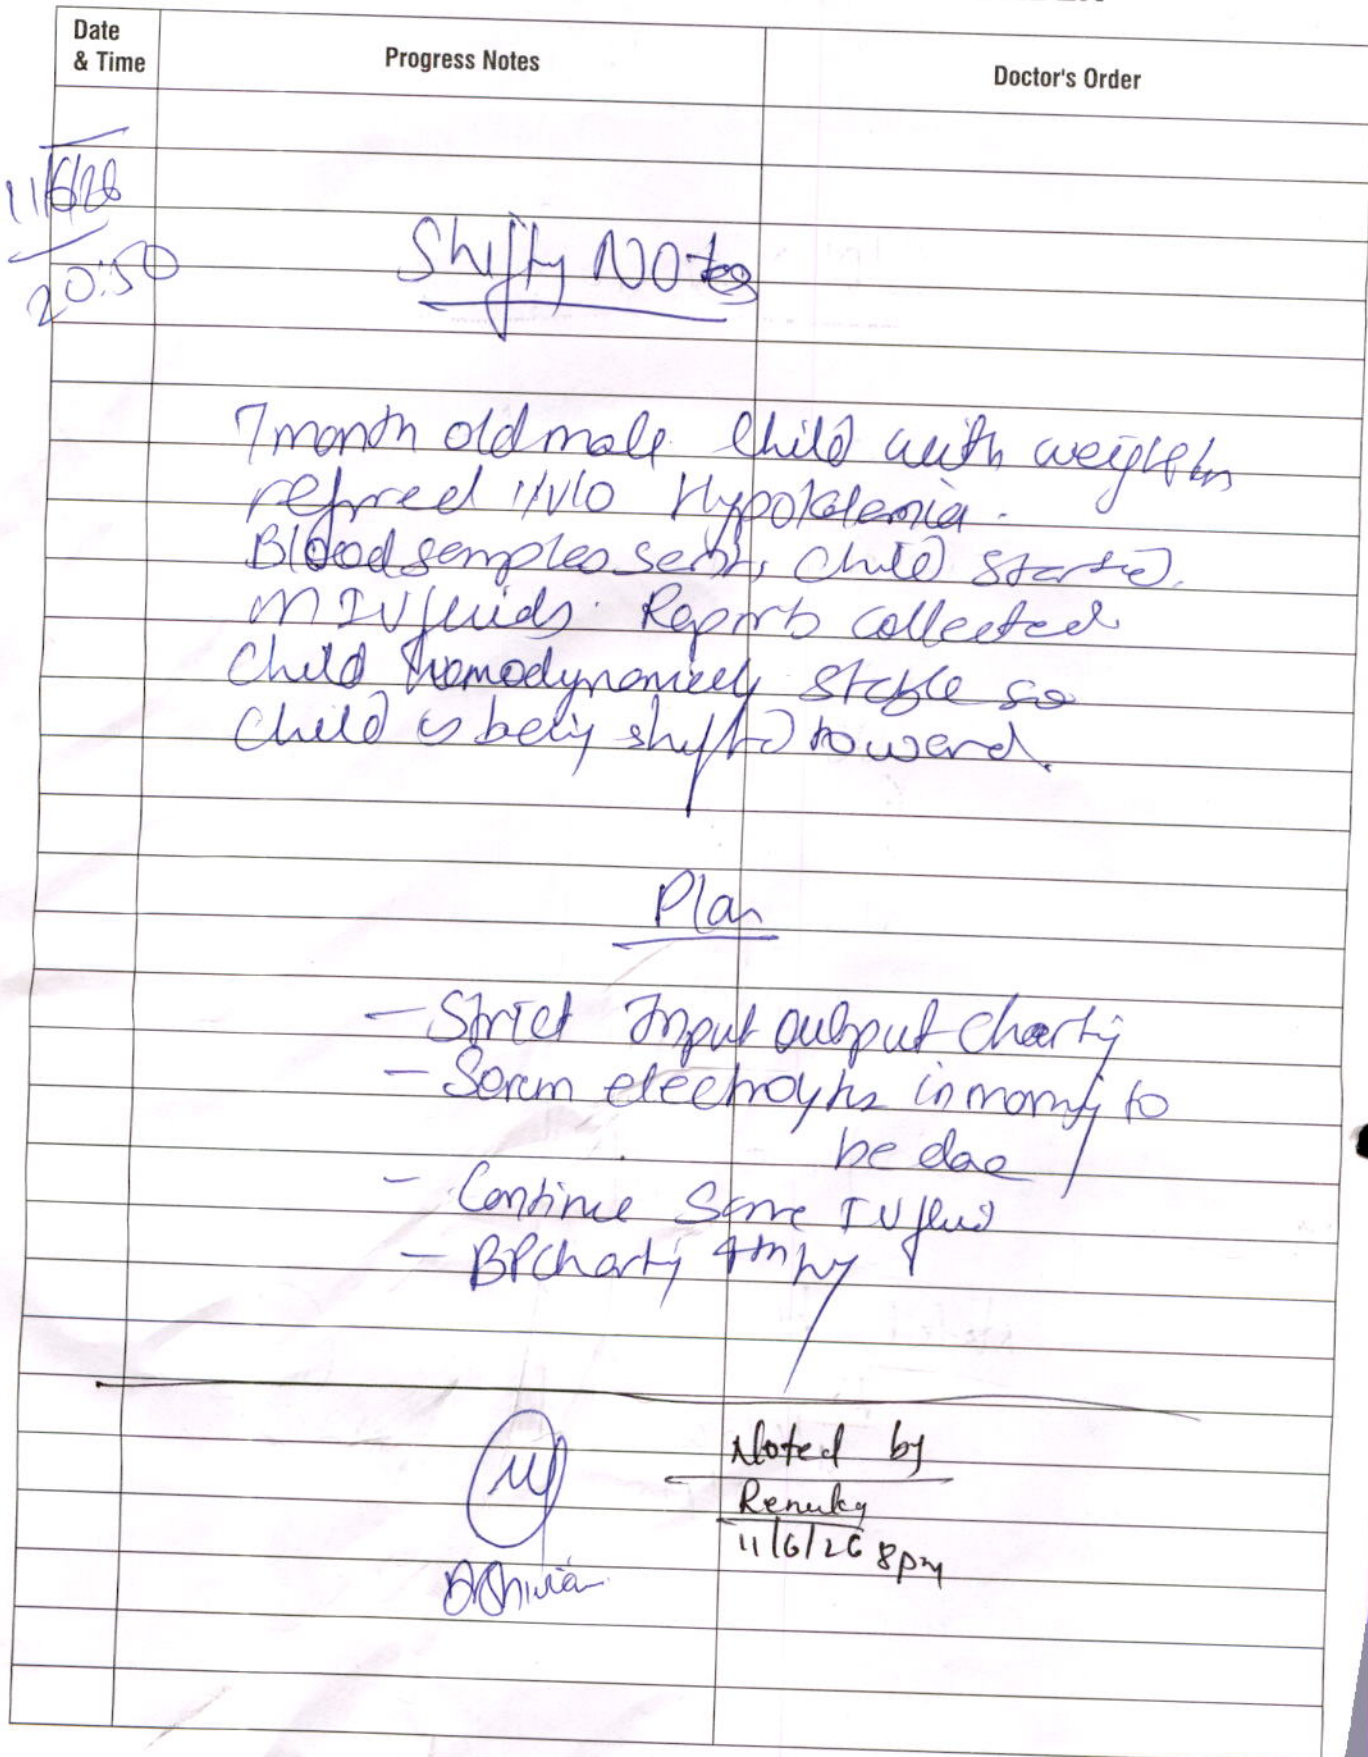 Date
& Time
Progress Notes
Doctor's Order
11/6/26
20:50
Shifting Notes
7 month old male child with weight
refrred i/v/o Hypokalemia.
Blood samples sent, child started
IV fluids. Reports collected
Child hemodynamically stable so
child is being shifted to ward.
Plan
- Strict Input output charting
- Serum electrolytes in morning to
be done
- Continue Same IV fluid
- BP charting
Noted by
Renuka
11/6/26 8pm